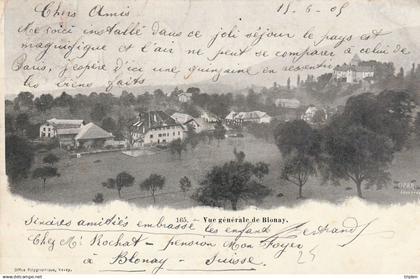 Chers Amis 15-6-05
Me voici installé dans ce joli séjour le pays est
magnifique et l'air ne peut se comparer à celui de
Paris, j'espère d'ici une quinzaine en ressentir
les biens faits
165. - Vue générale de Blonay.
Sincères amitiés embrasse les enfants
Chez Mr Rochat - pension Mon Foyer
à Blonay - Suisse
Office Polygraphique, Vevey.